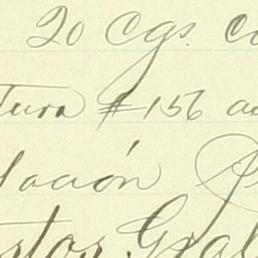 20 Cgs. C
tura #156 a
lación P
stor Gral